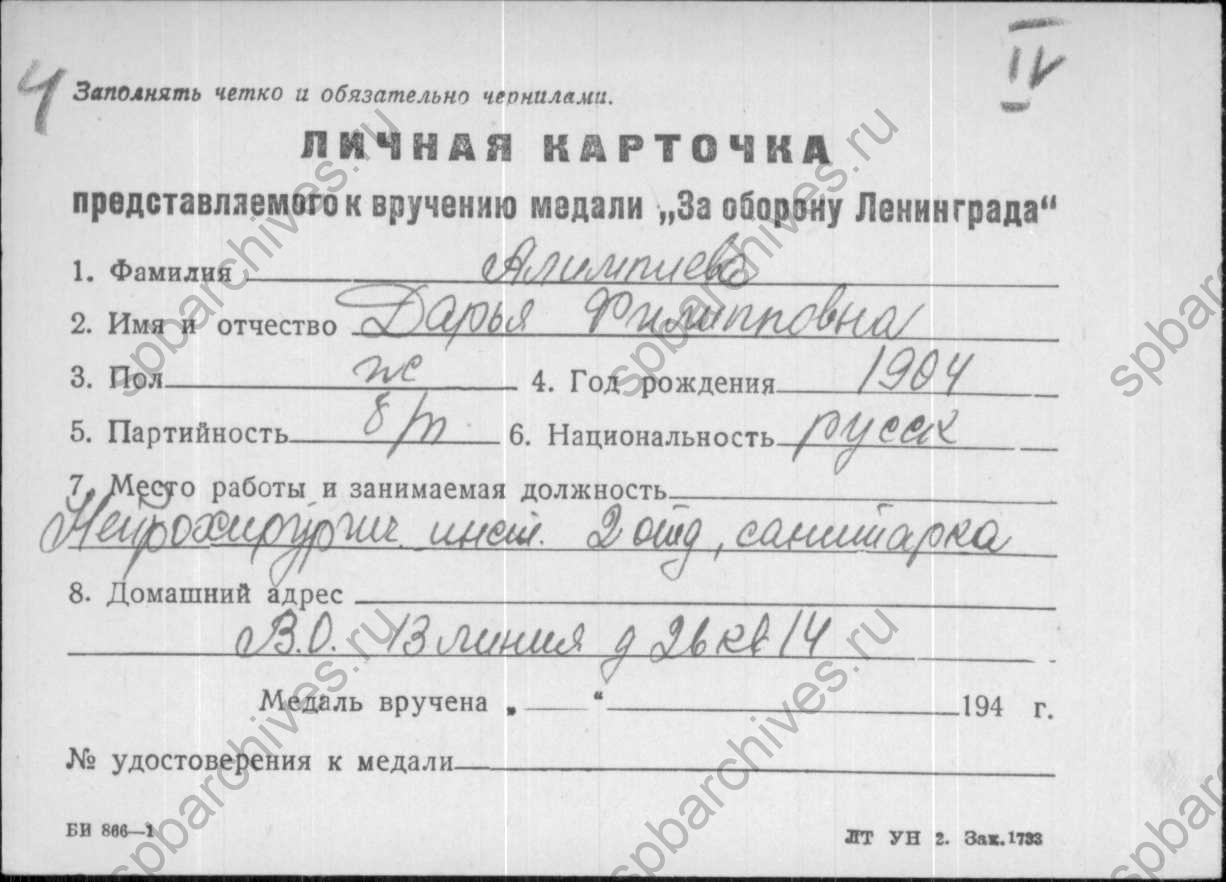 4
IV
Заполнять четко и обязательно чернилами.
ЛИЧНАЯ КАРТОЧКА
представляемого к вручению медали „За оборону Ленинграда“
1. Фамилия Алимпиева
2. Имя и отчество Дарья Филипповна
3. Пол ж 4. Год рождения 1904
5. Партийность б/п 6. Национальность русск
7. Место работы и занимаемая должность
Нейрохирургич. инст. 2 отд, санитарка
8. Домашний адрес
В.О. 13 линия д 26 кв 14
Медаль вручена „ “ 194 г.
№ удостоверения к медали
БИ 866—1
ЛТ УН 2. Зак. 1733
spbarchives.ru
spbarchives.ru
spbarchives.ru
spbarchives.ru